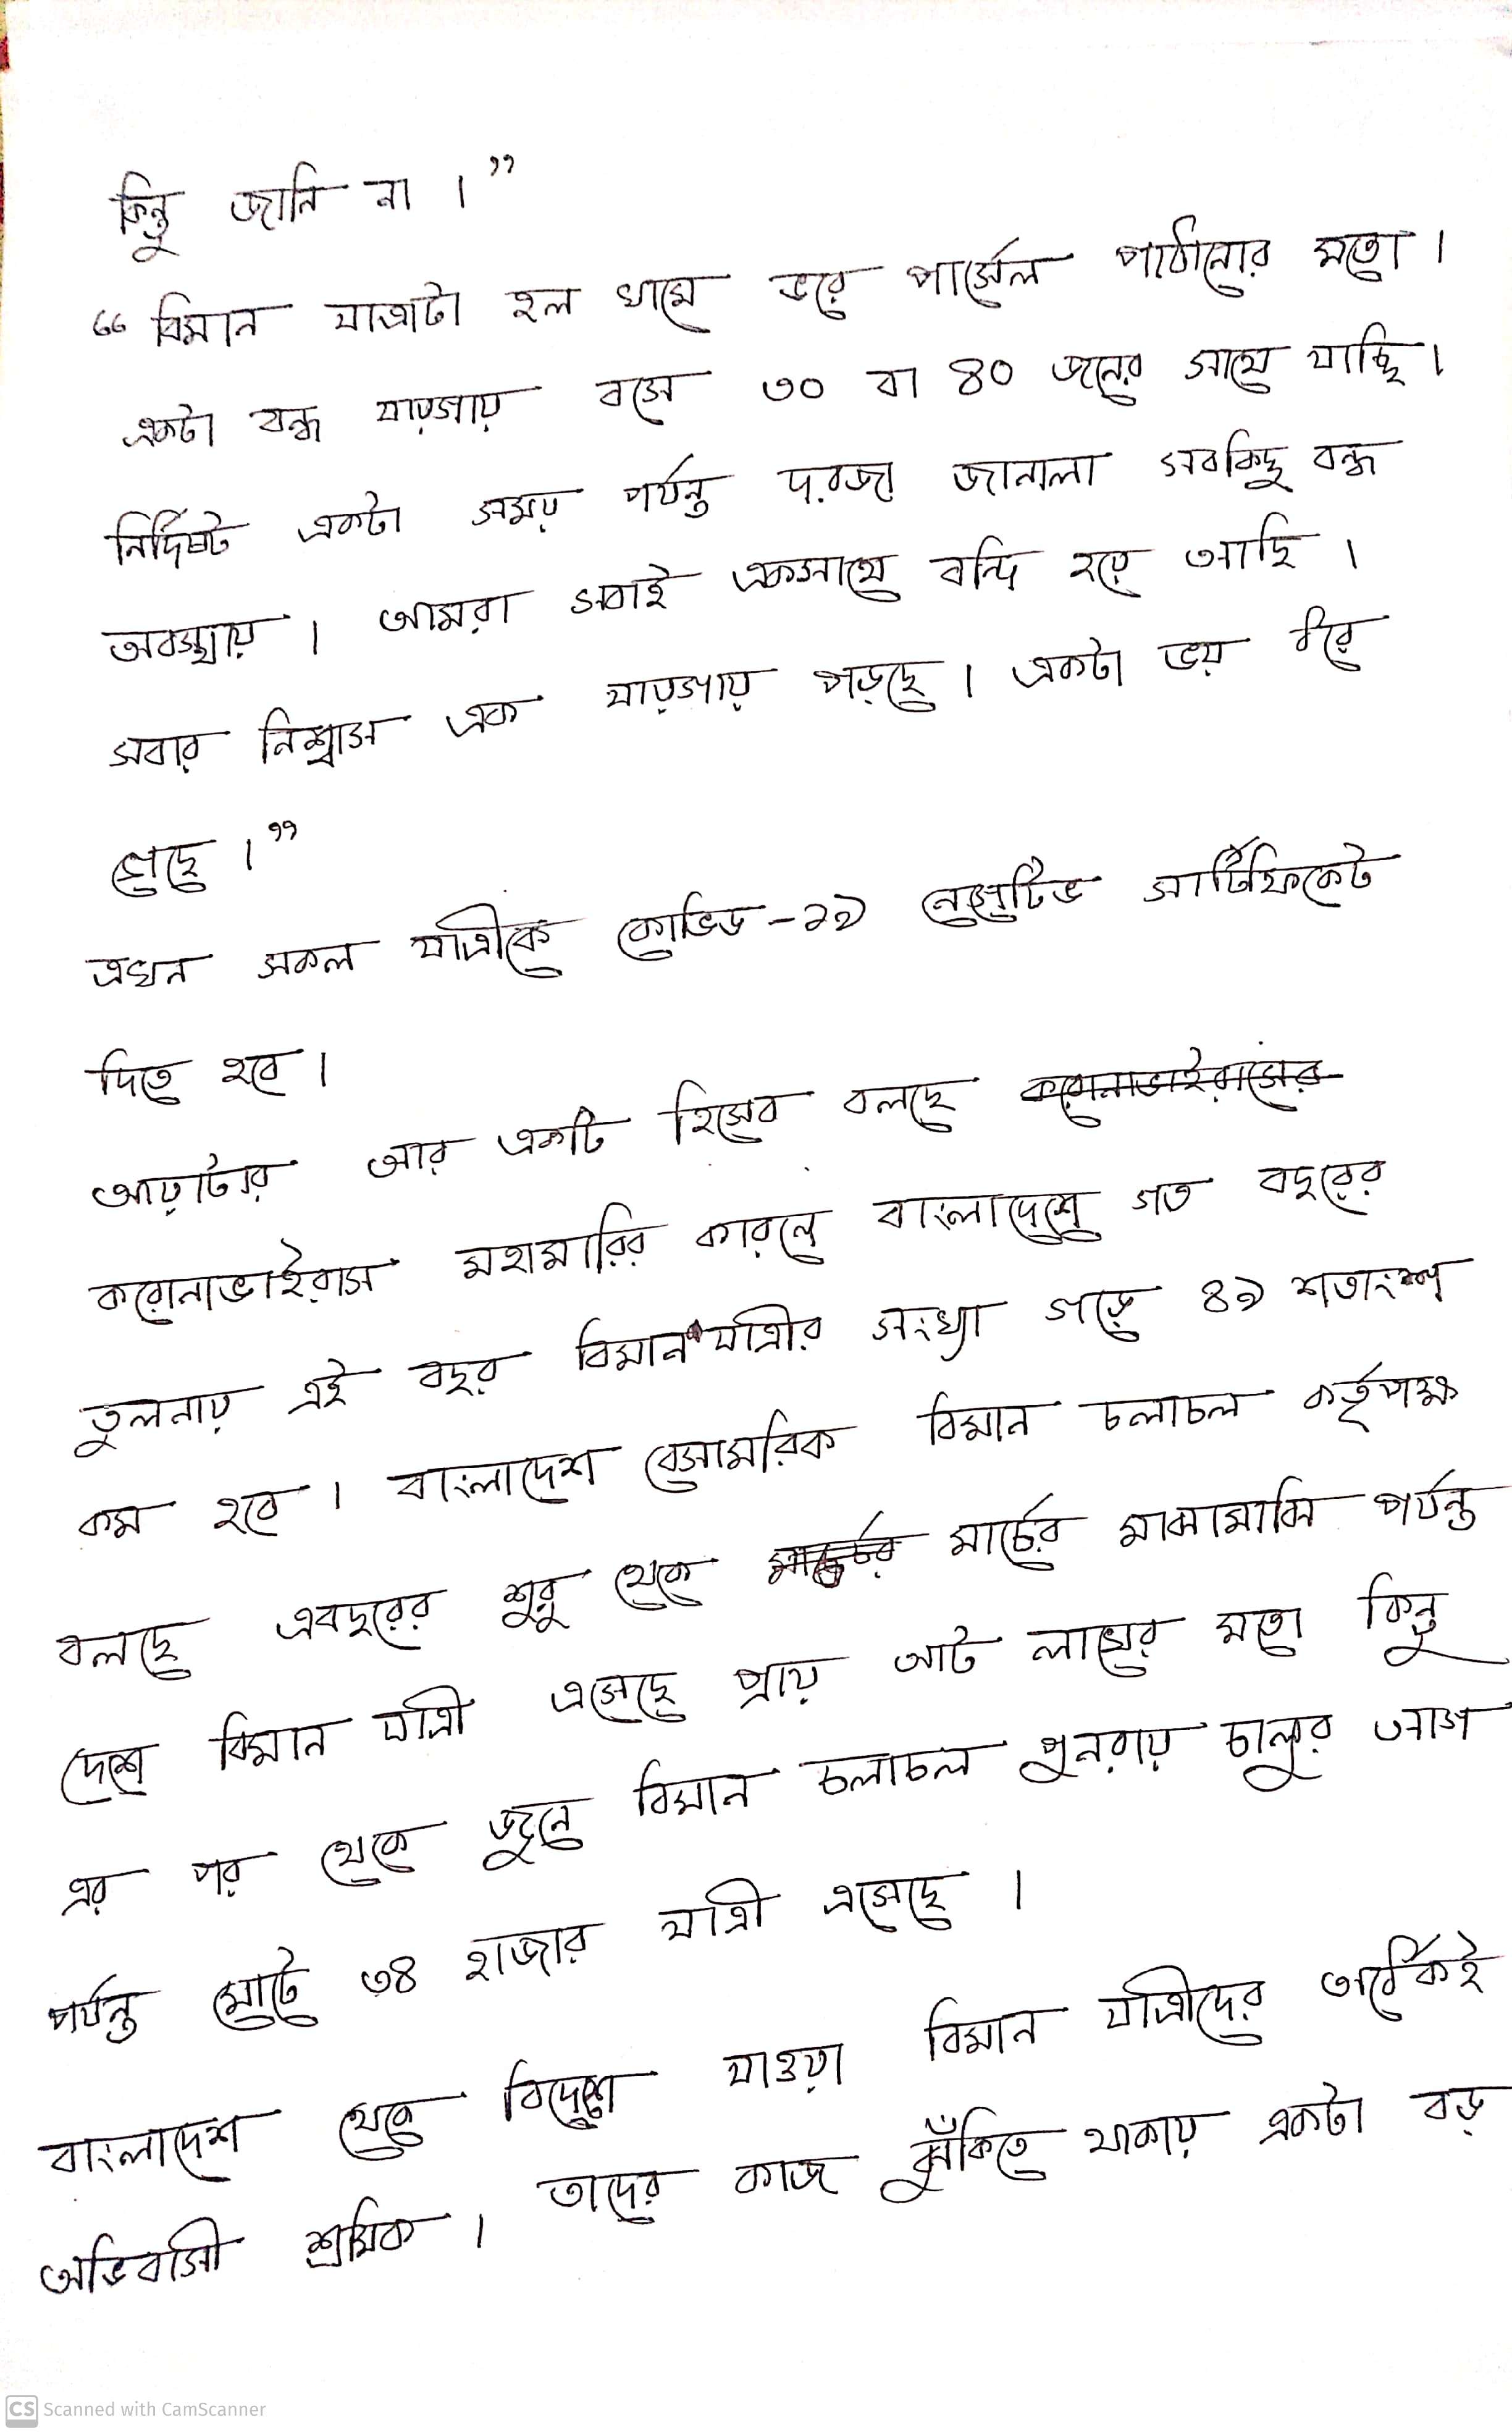 কিন্তু জানি না ।”
“বিমান যাত্রাটা হল খামে ভরে পার্সেল পাঠানোর মতো ।
একটা বন্ধ যায়গায় বসে ৩০ বা ৪০ জনের সাথে যাচ্ছি ।
নির্দিষ্ট একটা সময় পর্যন্ত দরজা জানালা সবকিছু বন্ধ
অবস্থায় । আমরা সবাই একসাথে বন্দি হয়ে আছি ।
সবার নিশ্বাস এক যায়গায় পড়ছে । একটা ভয় রয়ে
গেছে ।”
এখন সকল যাত্রীকে কোভিড-১৯ নেগেটিভ সার্টিফিকেট
দিতে হবে ।
আয়াটার আর একটি হিসেব বলছে করোনাভাইরাসের
করোনাভাইরাস মহামারির কারণে বাংলাদেশে গত বছরের
তুলনায় এই বছর বিমান যাত্রীর সংখ্যা গড়ে ৪৯ শতাংশ
কম হবে । বাংলাদেশ বেসামরিক বিমান চলাচল কর্তৃপক্ষ
বলছে এবছরের শুরু থেকে মার্চের মাঝামাঝি পর্যন্ত
দেশে বিমান যাত্রী এসেছে প্রায় আট লাখের মতো কিন্তু
এর পর থেকে জুনে বিমান চলাচল পুনরায় চালুর আগ
পর্যন্ত মোটে ৩৪ হাজার যাত্রী এসেছে ।
বাংলাদেশ থেকে বিদেশে যাওয়া বিমান যাত্রীদের অর্ধেকই
অভিবাসী শ্রমিক । তাদের কাজ ঝুঁকিতে থাকায় একটা বড়
CS Scanned with CamScanner